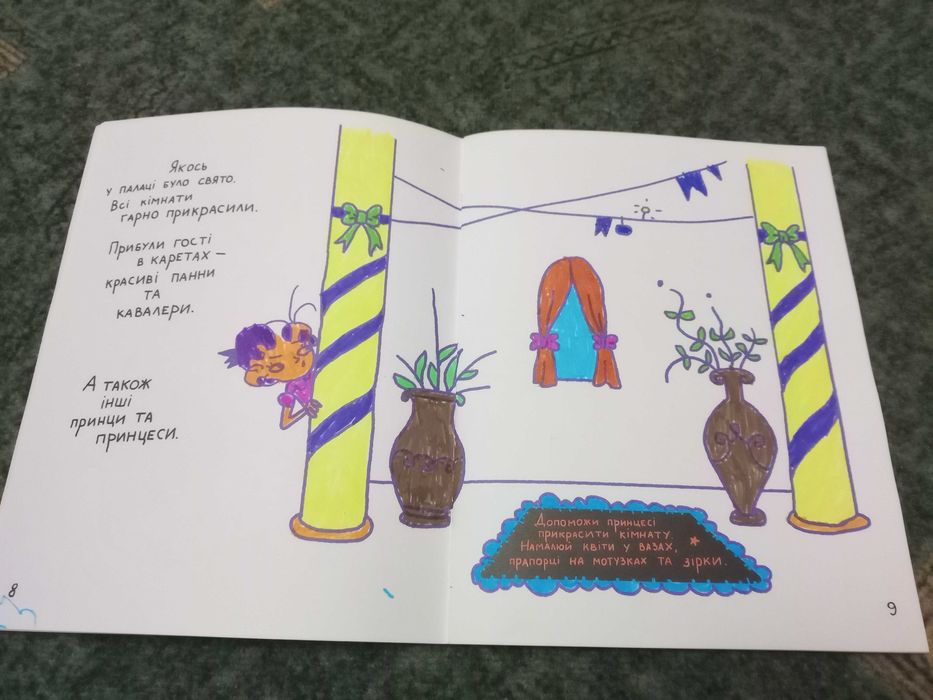 Якось
у палаці було свято.
Всі кімнати
гарно прикрасили.
Прибули гості
в каретах —
красиві панни
та
кавалери.
А також
інші
принци та
принцеси.
Допоможи принцесі
прикрасити кімнату.
Намалюй квіти у вазах,
прапорці на мотузках та зірки.
8
9